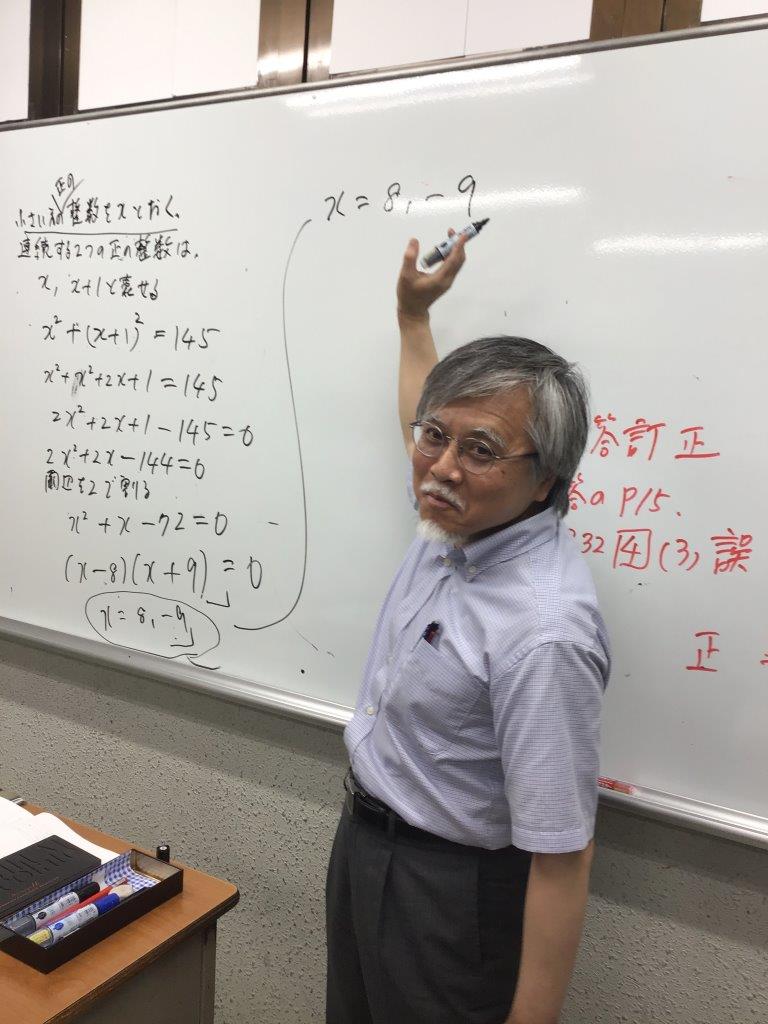 正の
小さい方の整数をxとおく、
連続する2つの正の整数は、
x, x+1と表せる
x²+(x+1)²=145
x²+x²+2x+1=145
2x²+2x+1-145=0
2x²+2x-144=0
両辺を2で割る
x²+x-72=0
(x-8)(x+9)=0
x=8,-9
x=8,-9
答訂正
答のP15、
232 4 (3) 誤
正